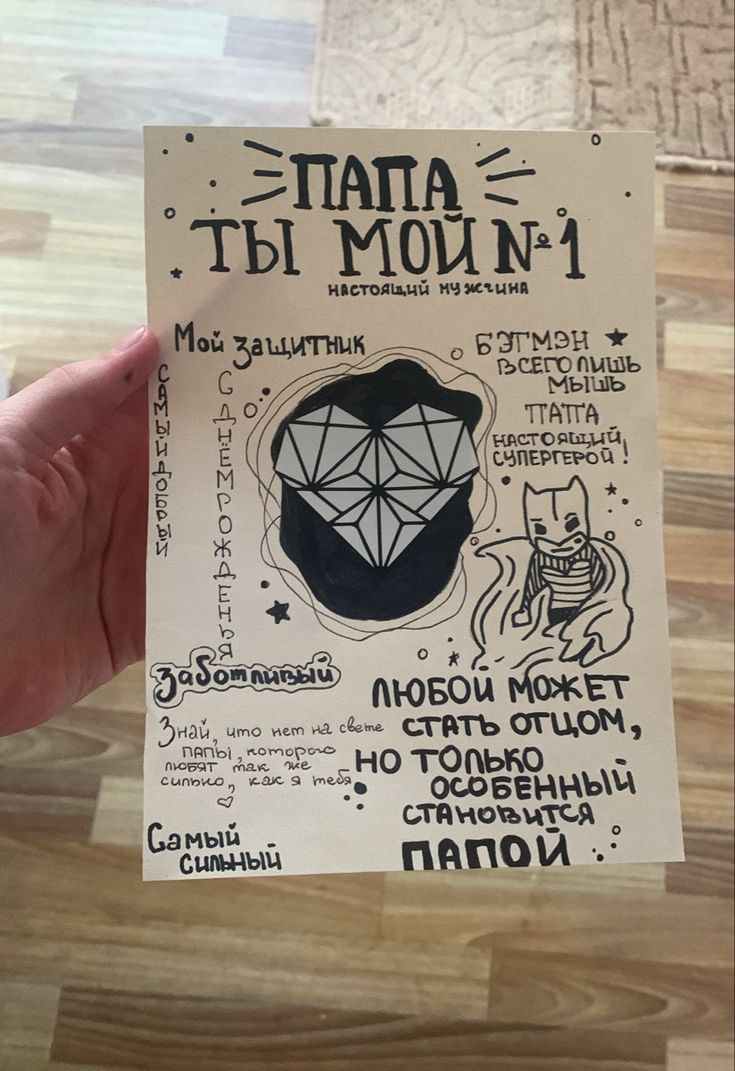 ПАПА
ТЫ МОЙ №1
НАСТОЯЩИЙ МУЖЧИНА
Мой защитник
САМЫЙ ДОБРЫЙ
С ДНЁМ РОЖДЕНЬЯ
БЭТМЭН
ВСЕГО ЛИШЬ
МЫШЬ
ПАПА
НАСТОЯЩИЙ
СУПЕРГЕРОЙ!
Заботливый
Знай, что нет на свете
папы, которого
любят так же
сильно, как я тебя
ЛЮБОЙ МОЖЕТ
СТАТЬ ОТЦОМ,
НО ТОЛЬКО
ОСОБЕННЫЙ
СТАНОВИТСЯ
ПАПОЙ
Самый
сильный